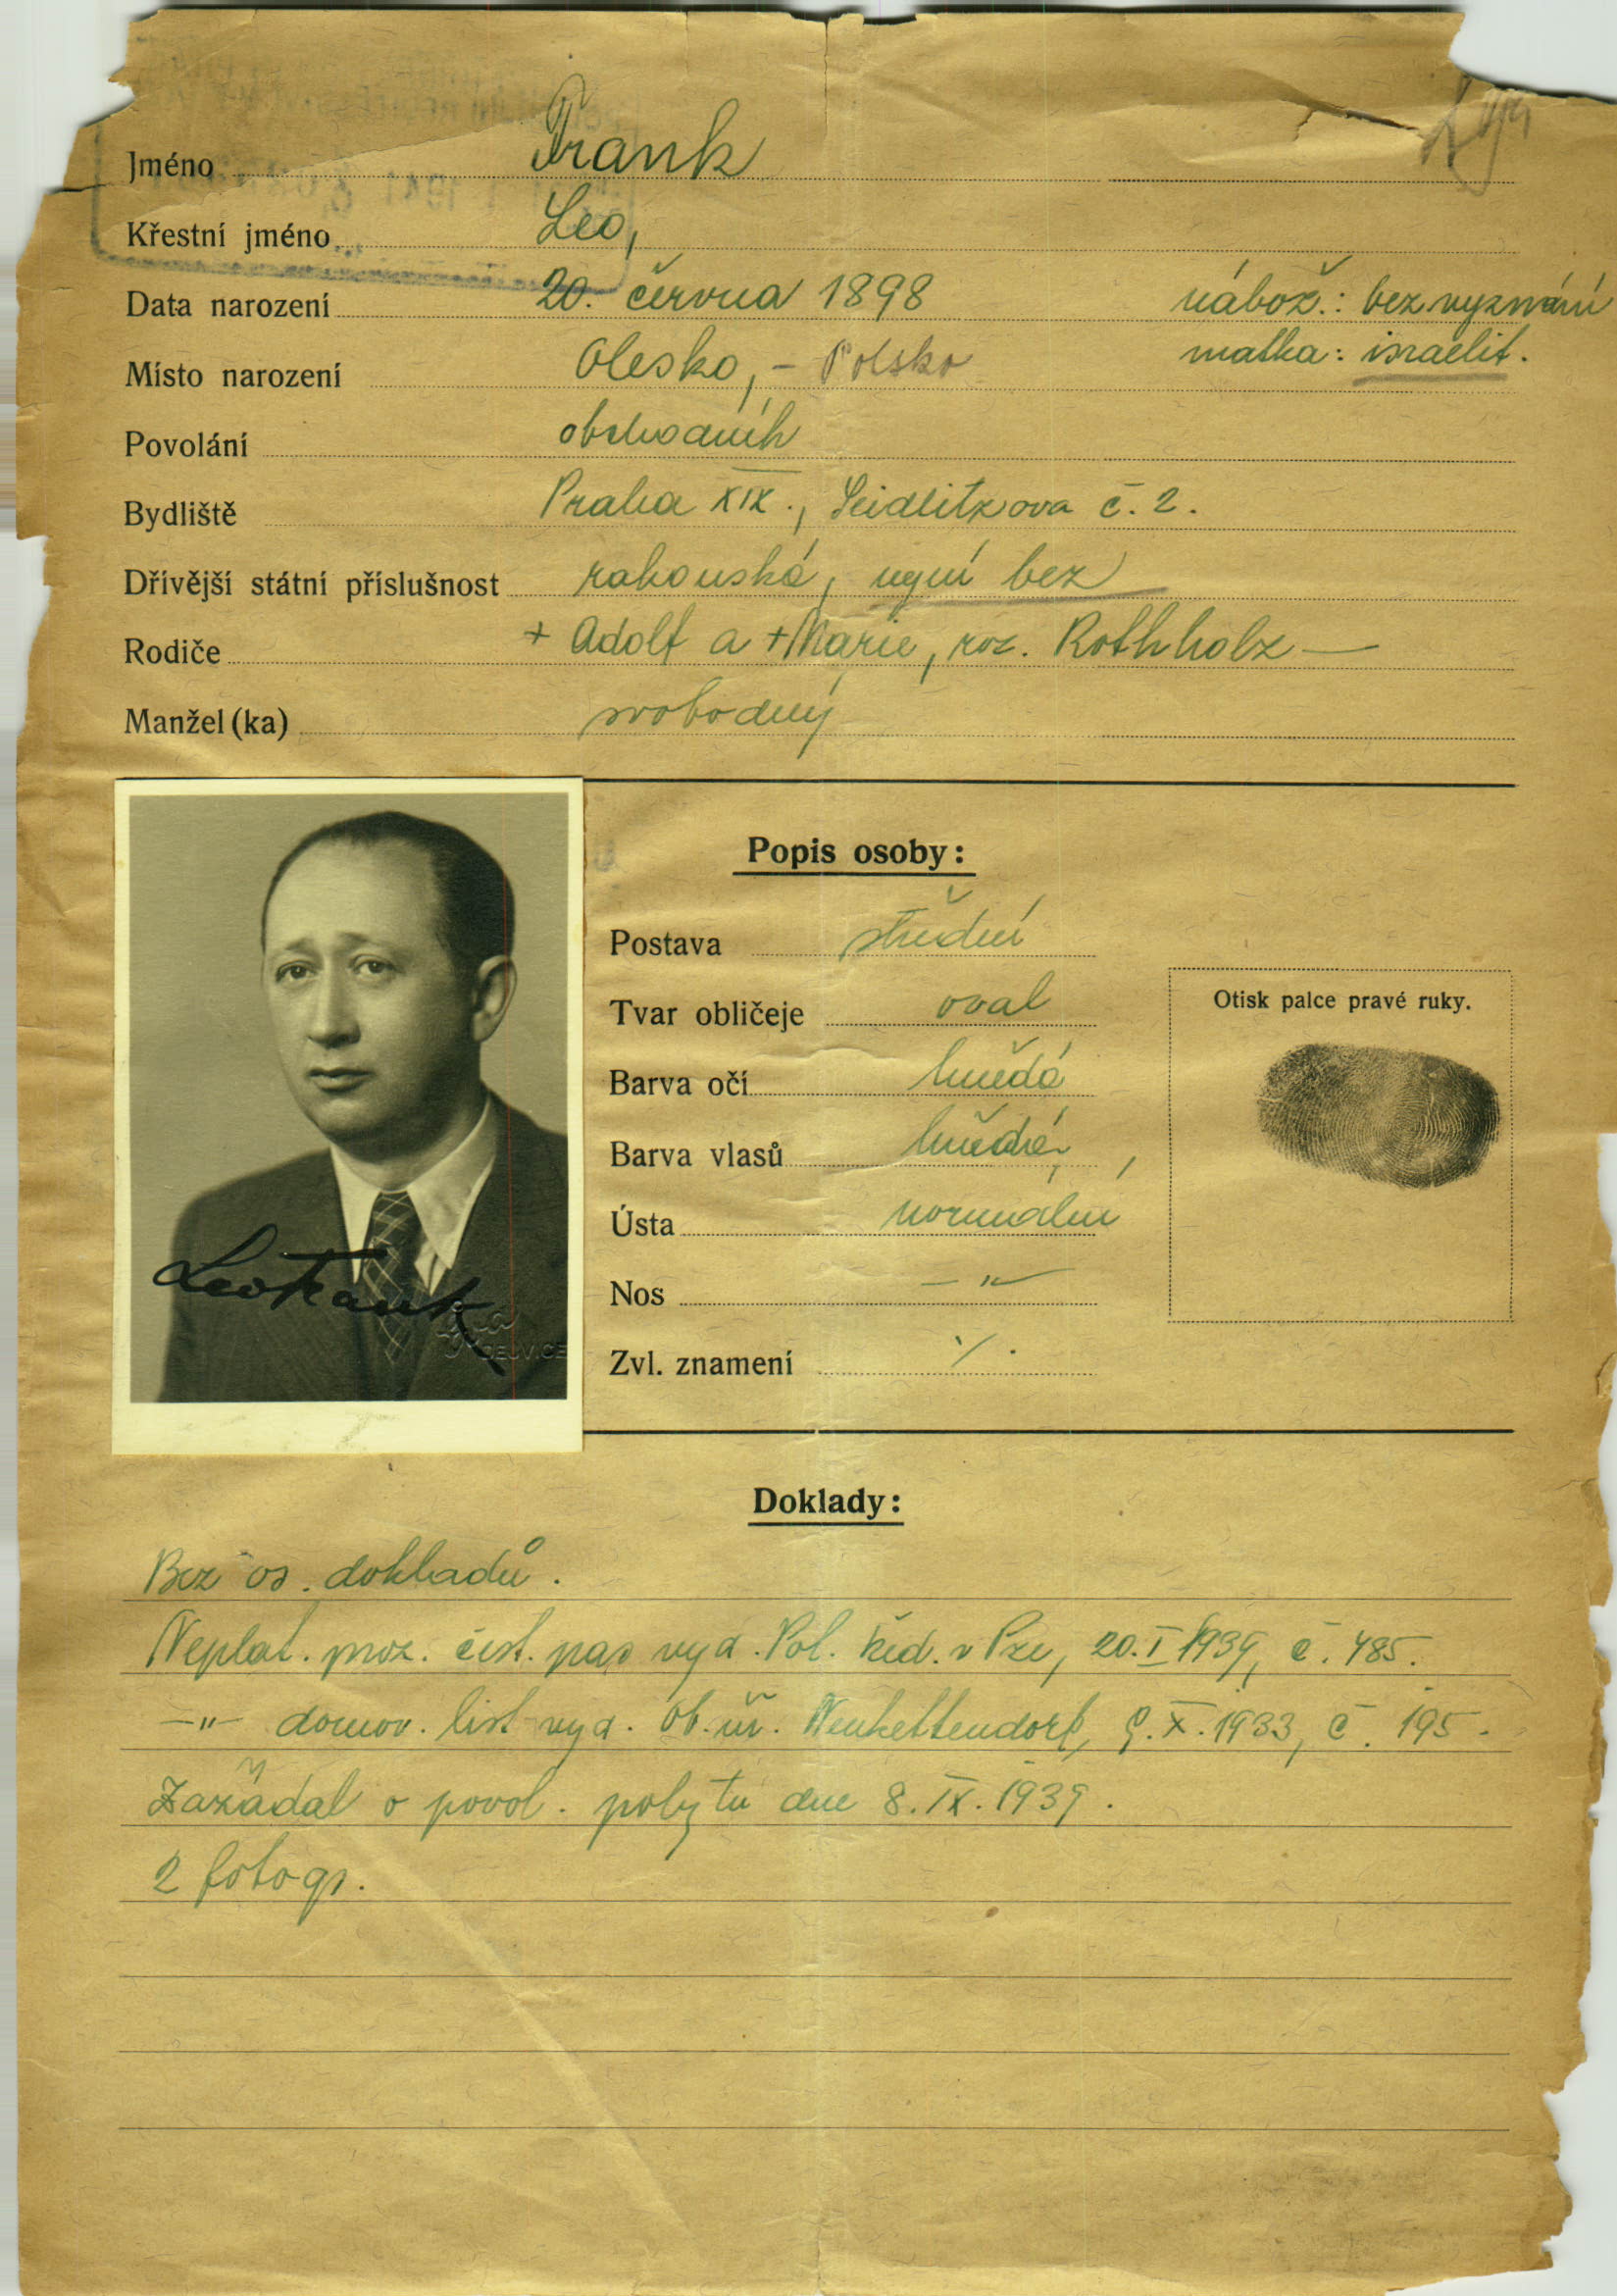 Jméno Frank
Křestní jméno Leo,
Data narození 20. června 1898 nábož.: bez vyznání
Místo narození Olesko, - Polsko matka: israelit.
Povolání obchodník
Bydliště Praha XIX., Seidlitzova č. 2.
Dřívější státní příslušnost rakouská, nyní bez
Rodiče + Adolf a + Marie, roz. Rothholz —
Manžel(ka) svobodný
Popis osoby:
Postava střední
Tvar obličeje oval
Barva očí hnědá
Barva vlasů hnědé
Ústa normální
Nos — " —
Zvl. znamení ·/·
Otisk palce pravé ruky.
Leo Frank
DEJVICE
Doklady:
Bez os. dokladů.
Neplat. proz. čest. pas vyd. Pol. řed. v Pze, 20. I 1939, č. 485.
—"— domov. list vyd. Ob. úř. Neukettendorf, 9. X. 1933, č. 195.
Zažádal o povol. pobytu dne 8. IX. 1939.
2 fotogr.